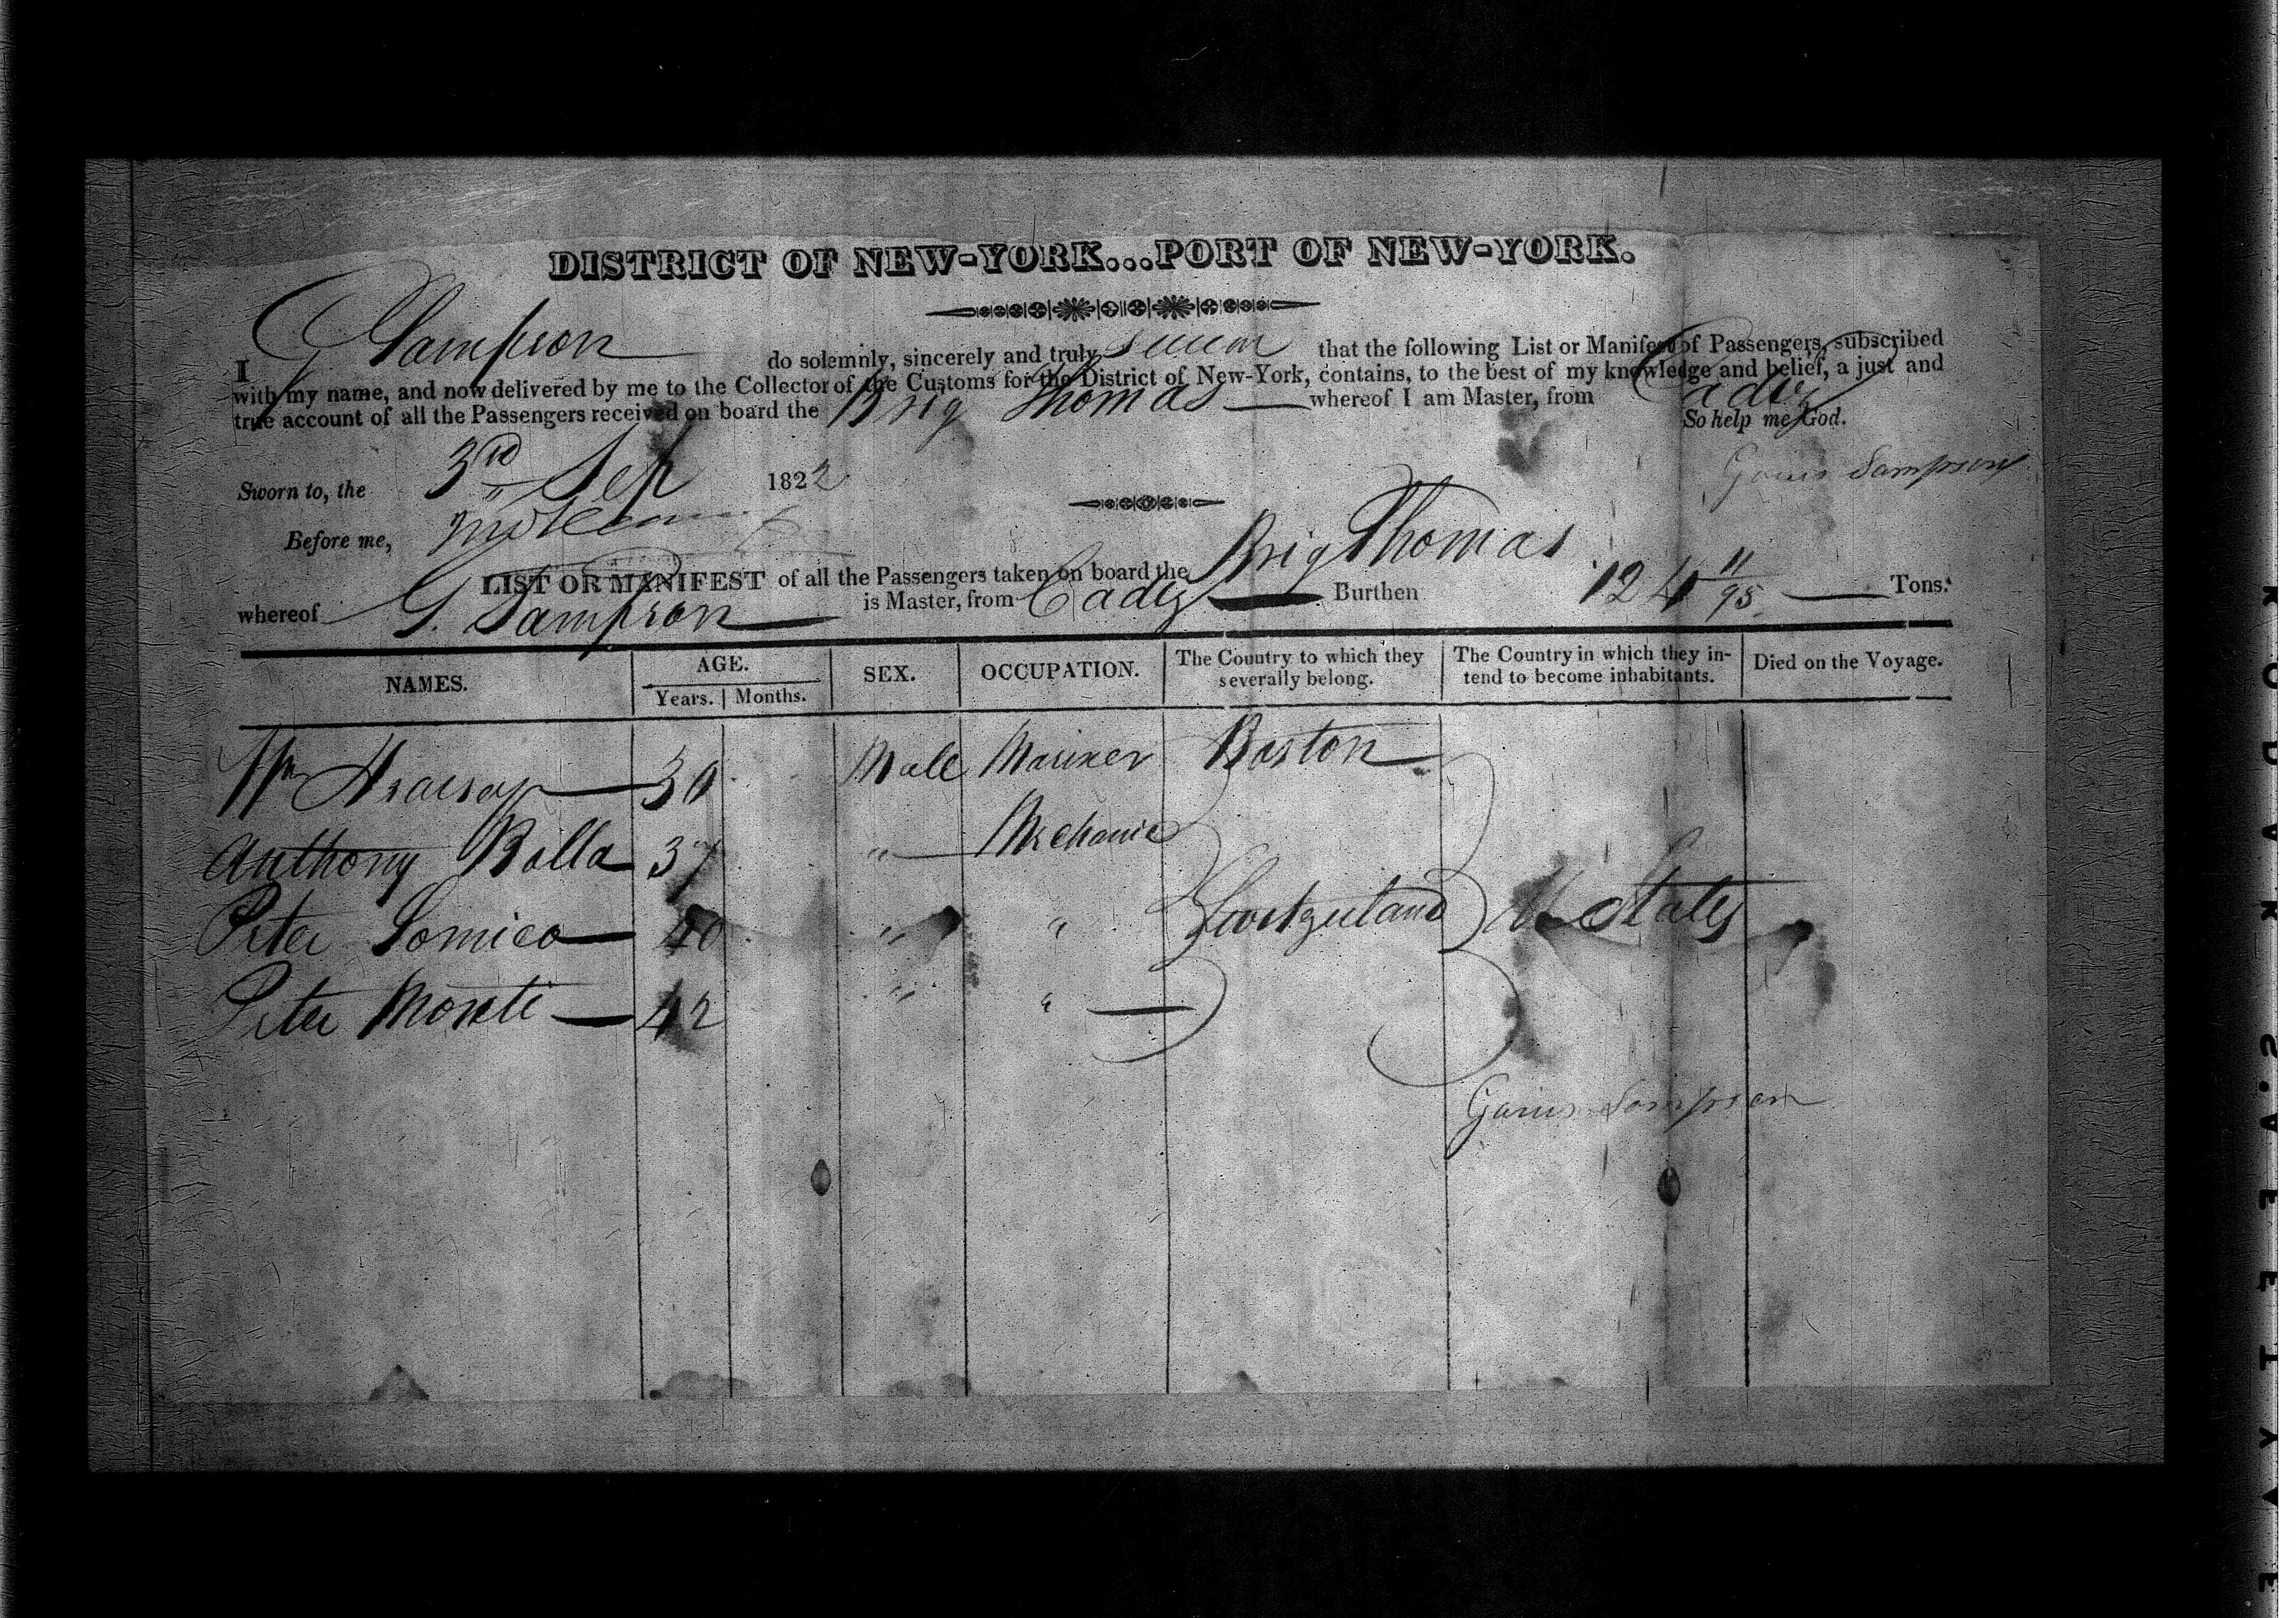 DISTRICT OF NEW-YORK...PORT OF NEW-YORK.
I G Sampson do solemnly, sincerely and truly swear that the following List or Manifest of Passengers, subscribed
with my name, and now delivered by me to the Collector of the Customs for the District of New-York, contains, to the best of my knowledge and belief, a just and
true account of all the Passengers received on board the Brig Thomas whereof I am Master, from Cadiz
So help me God.
Sworn to, the 3rd Sep 1822
Sampson
Before me,
LIST OR MANIFEST of all the Passengers taken on board the Brig Thomas
whereof G. Sampson is Master, from Cadiz Burthen 124 11/95 Tons.
NAMES. AGE. SEX. OCCUPATION. The Country to which they severally belong. The Country in which they intend to become inhabitants. Died on the Voyage.
Years. Months.
Wm 30 Male Mariner Boston
Anthony Rolla 37 " Mechanic
Peter Somico 40 " " Switzerland U States
Peter Monti 42 " "
Sampson
KODAK
SAFETY